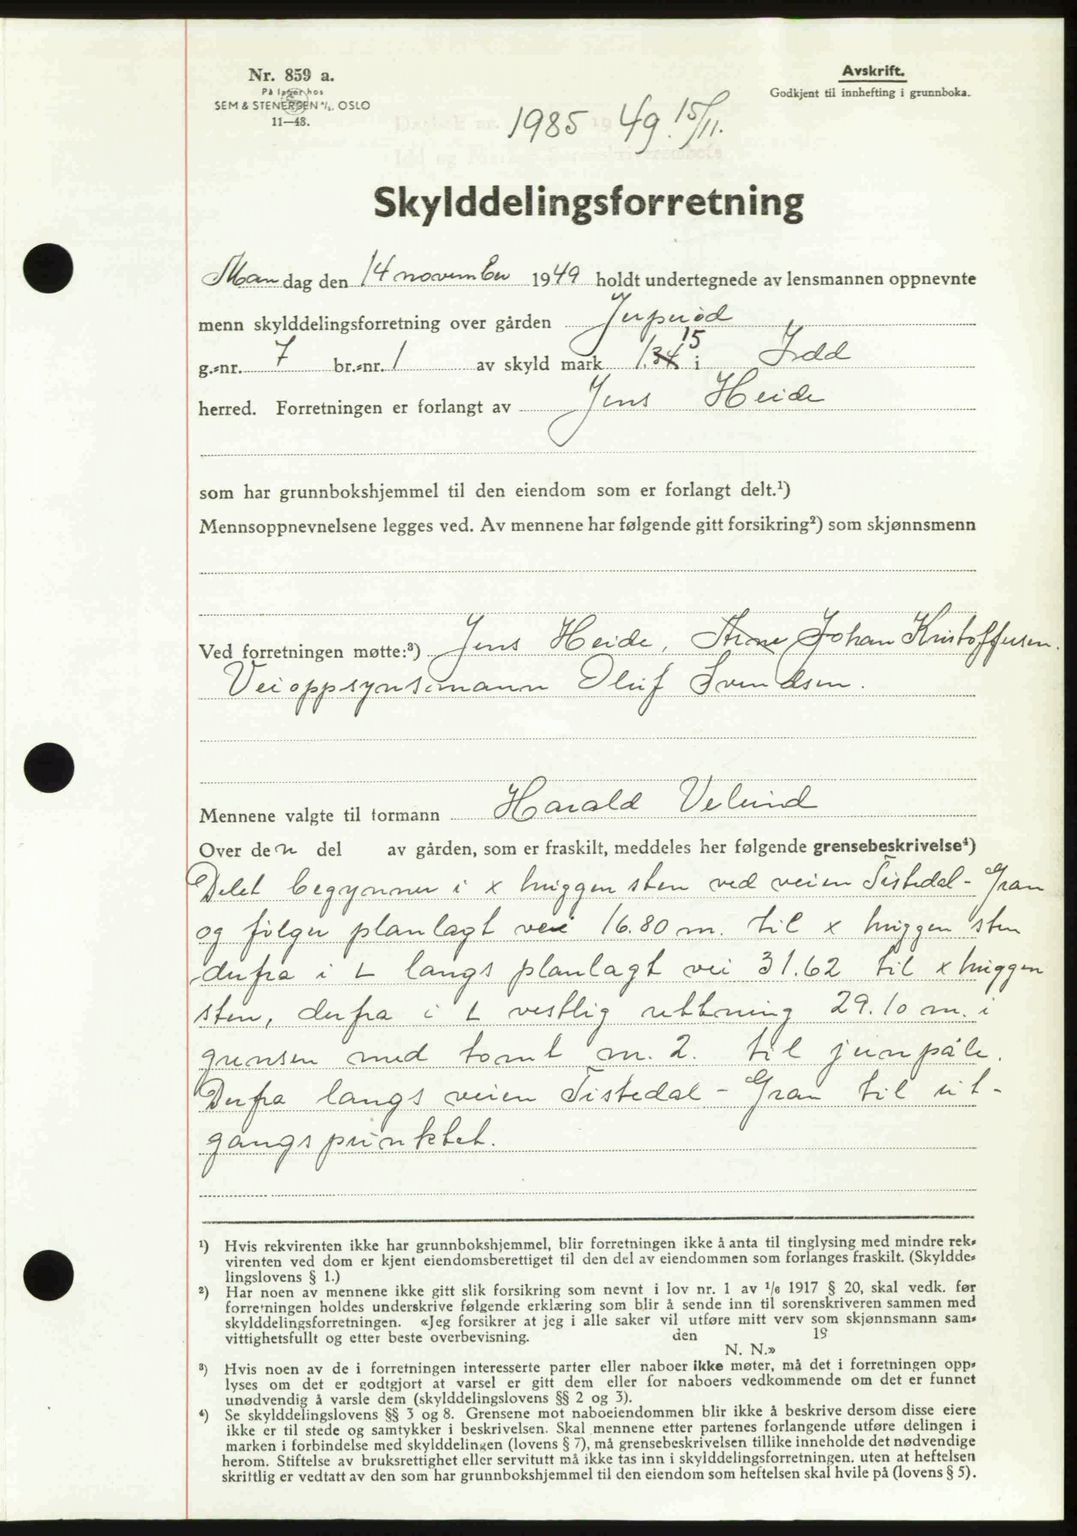 Nr. 859 a.
På lager hos
SEM & STENERSEN A/S, OSLO
11—48.
Avskrift.
Godkjent til innhefting i grunnboka.
1985 49. 15/11.
Skylddelingsforretning
Mandag den 14 november 1949 holdt undertegnede av lensmannen oppnevnte
menn skylddelingsforretning over gården Jerperød
g.-nr. 7 br.-nr. 1 av skyld mark 1.34 15 i Idd
herred. Forretningen er forlangt av Jens Heide
som har grunnbokshjemmel til den eiendom som er forlangt delt.¹)
Mennsoppnevnelsene legges ved. Av mennene har følgende gitt forsikring²) som skjønnsmenn
Ved forretningen møtte:³) Jens Heide, Arne Johan Kristoffersen.
Veioppsynsmann Oluf Svendsen.
Mennene valgte til formann Harald Velund
Over den del av gården, som er fraskilt, meddeles her følgende grensebeskrivelse⁴)
Delet begynner i x huggen sten ved veien Tistedal - Gran
og følger planlagt vei 16.80 m. til x huggen sten
derfra i L langs planlagt vei 31.62 til x huggen
sten, derfra i L vestlig rettning 29.10 m. i
grensen med tomt m. 2. til jernpåle.
Derfra langs veien Tistedal - Gran til ut-
gangspunktet.
¹) Hvis rekvirenten ikke har grunnbokshjemmel, blir forretningen ikke å anta til tinglysing med mindre rek-
virenten ved dom er kjent eiendomsberettiget til den del av eiendommen som forlanges fraskilt. (Skyldde-
lingslovens § 1.)
²) Har noen av mennene ikke gitt slik forsikring som nevnt i lov nr. 1 av 1/6 1917 § 20, skal vedk. før
forretningen holdes underskrive følgende erklæring som blir å sende inn til sorenskriveren sammen med
skylddelingsforretningen. «Jeg forsikrer at jeg i alle saker vil utføre mitt verv som skjønnsmann sam-
vittighetsfullt og etter beste overbevisning. den 19
N. N.»
³) Hvis noen av de i forretningen interesserte parter eller naboer ikke møter, må det i forretningen opp-
lyses om det er godtgjort at varsel er gitt dem eller for naboers vedkommende om det er funnet
unødvendig å varsle dem (skylddelingslovens §§ 2 og 3).
⁴) Se skylddelingslovens §§ 3 og 8. Grensene mot naboeiendommen blir ikke å beskrive dersom disse eiere
ikke er til stede og samtykker i beskrivelsen. Skal mennene etter partenes forlangende utføre delingen i
marken i forbindelse med skylddelingen (lovens § 7), må grensebeskrivelsen tillike inneholde det nødvendige
herom. Stiftelse av bruksrettighet eller servitutt må ikke tas inn i skylddelingsforretningen. uten at heftelsen
skrittlig er vedtatt av den som har grunnbokshjemmel til den eiendom som heftelsen skal hvile på (lovens § 5).